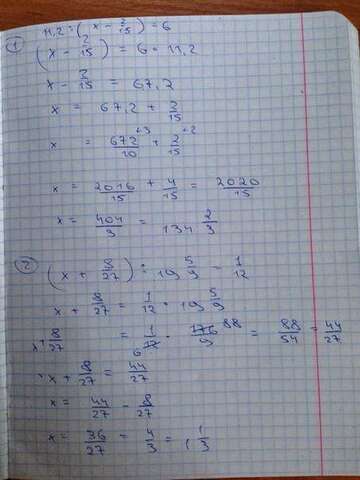 1 11,2 : (x - 2/15) = 6
(x - 2/15) = 6 · 11,2
x - 2/15 = 67,2
x = 67,2 + 2/15
x = 672/10 ·3 + 2/15 ·2
x = 2016/15 + 4/15 = 2020/15
x = 404/3 = 134 2/3
2 (x + 8/27) : 19 5/9 = 1/12
x + 8/27 = 1/12 · 19 5/9
x + 8/27 = 1/12 6 · 176/9 88 = 88/54 = 44/27
x + 8/27 = 44/27
x = 44/27 - 8/27
x = 36/27 = 4/3 = 1 1/3